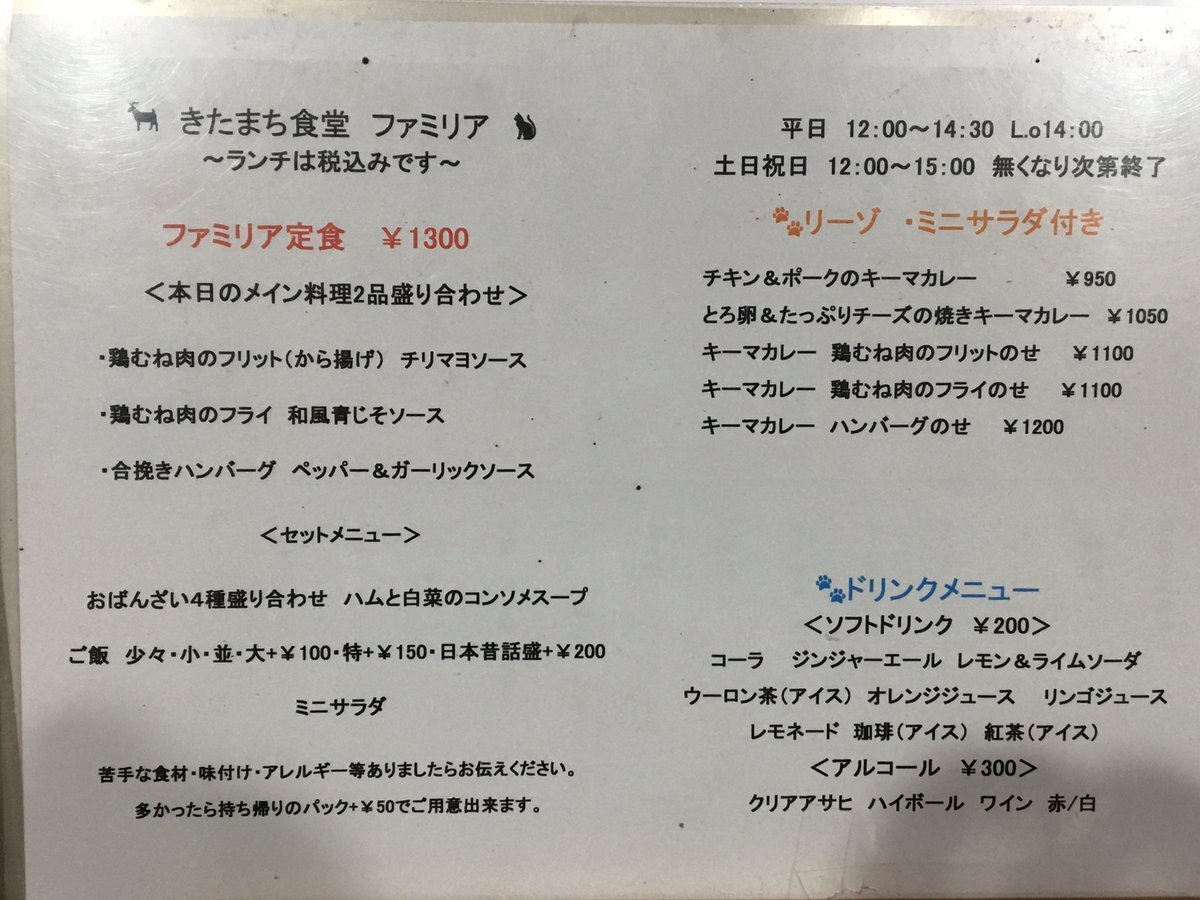 きたまち食堂 ファミリア
～ランチは税込みです～
ファミリア定食 ￥1300
＜本日のメイン料理2品盛り合わせ＞
・鶏むね肉のフリット（から揚げ） チリマヨソース
・鶏むね肉のフライ 和風青じそソース
・合挽きハンバーグ ペッパー＆ガーリックソース
＜セットメニュー＞
おばんざい4種盛り合わせ ハムと白菜のコンソメスープ
ご飯 少々・小・並・大+￥100・特+￥150・日本昔話盛+￥200
ミニサラダ
苦手な食材・味付け・アレルギー等ありましたらお伝えください。
多かったら持ち帰りのパック+￥50でご用意出来ます。
平日 12:00～14:30 L.o14:00
土日祝日 12:00～15:00 無くなり次第終了
リーゾ ・ミニサラダ付き
チキン＆ポークのキーマカレー ￥950
とろ卵＆たっぷりチーズの焼きキーマカレー ￥1050
キーマカレー 鶏むね肉のフリットのせ ￥1100
キーマカレー 鶏むね肉のフライのせ ￥1100
キーマカレー ハンバーグのせ ￥1200
ドリンクメニュー
＜ソフトドリンク ￥200＞
コーラ ジンジャーエール レモン＆ライムソーダ
ウーロン茶（アイス） オレンジジュース リンゴジュース
レモネード 珈琲（アイス） 紅茶（アイス）
＜アルコール ￥300＞
クリアアサヒ ハイボール ワイン 赤/白